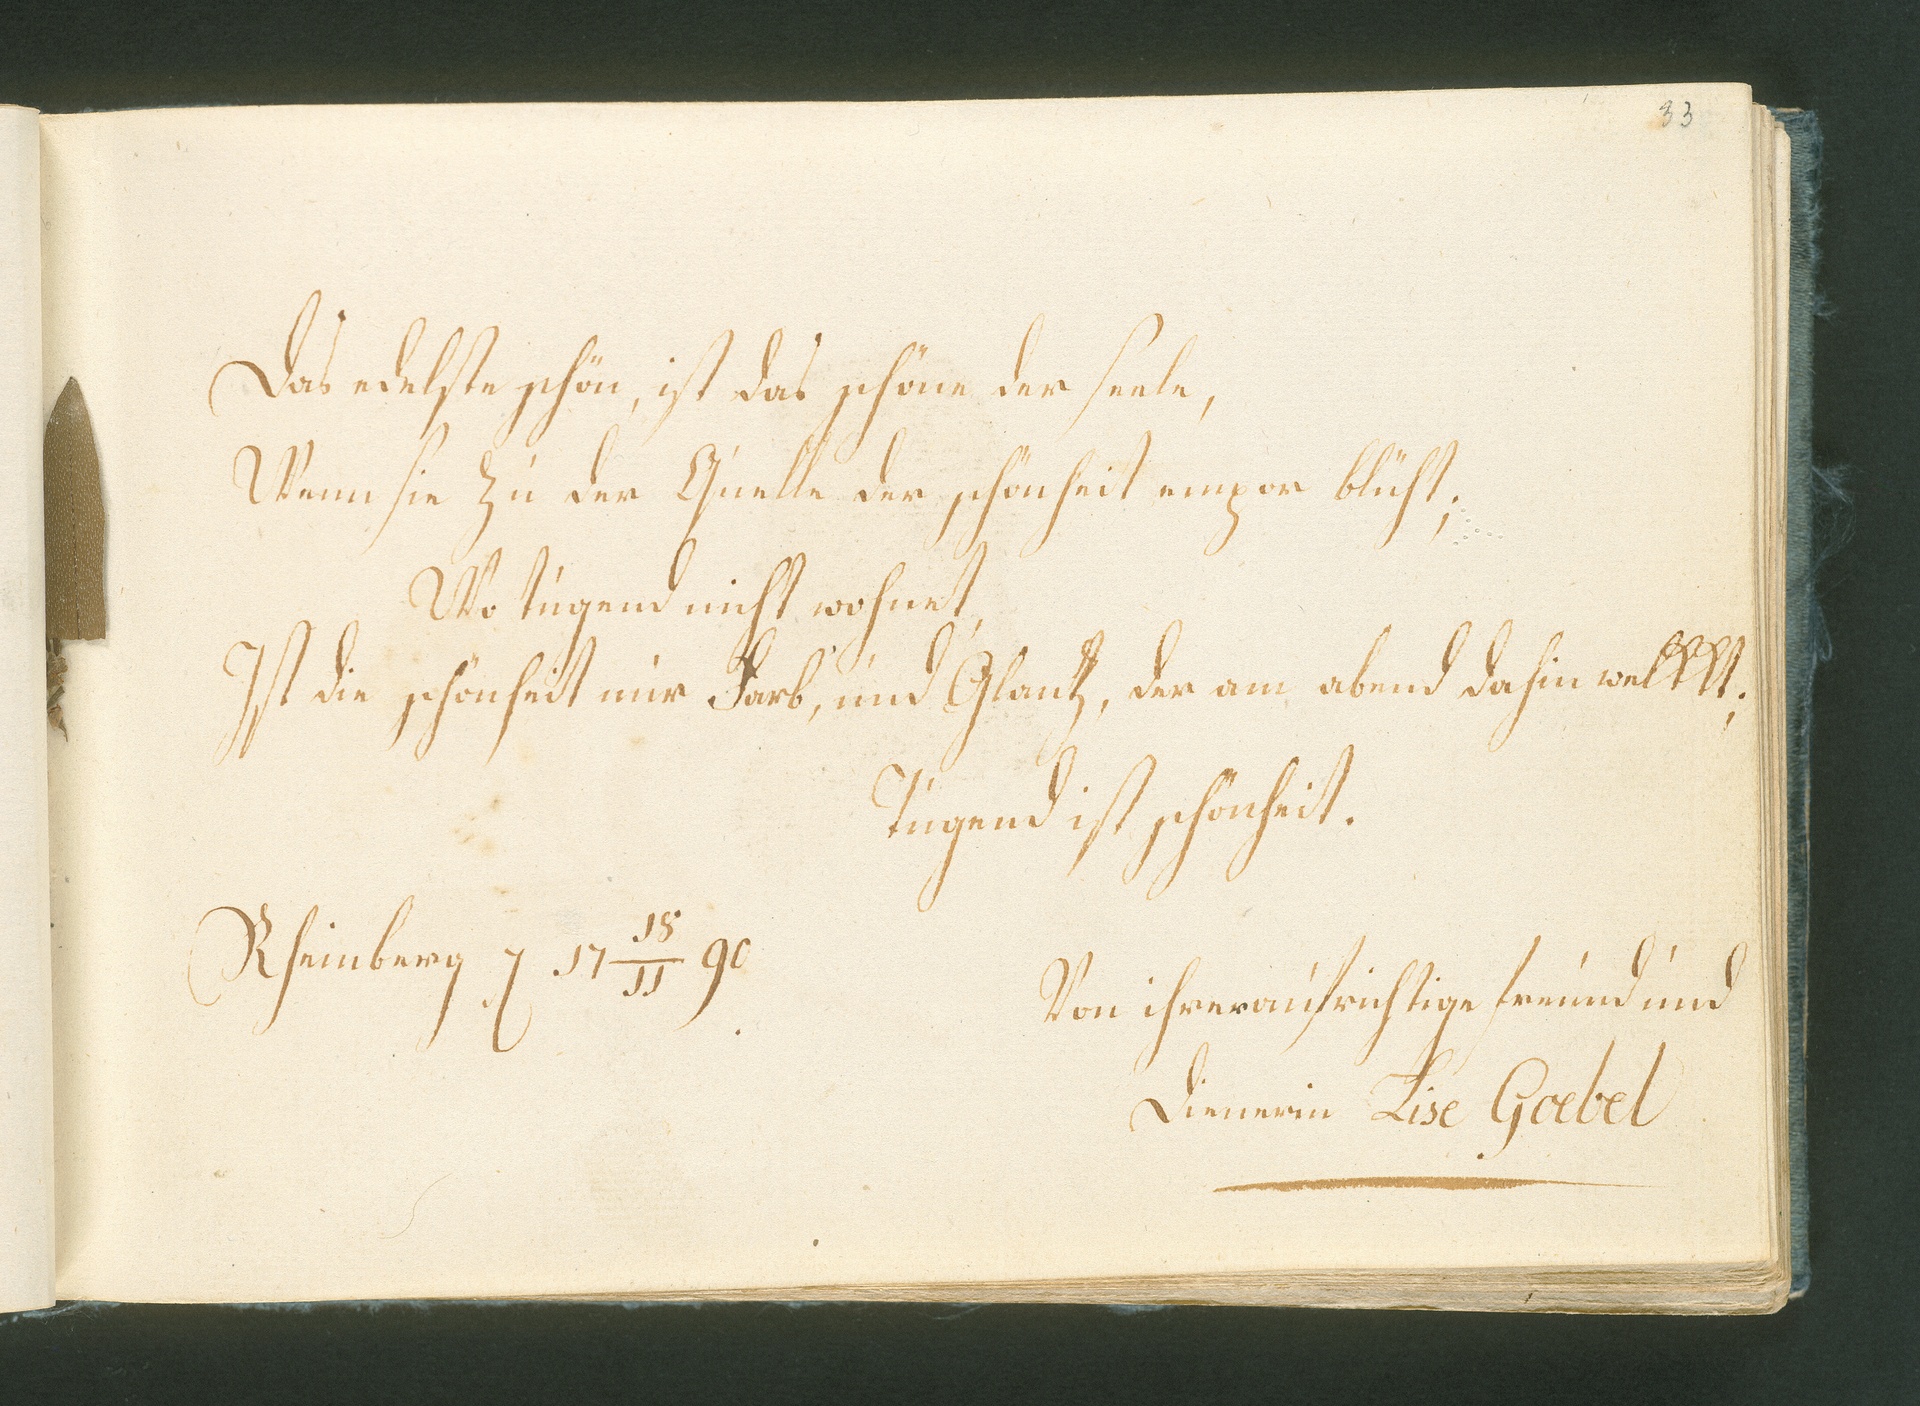 33
Das edelste schön, ist das schöne der seele,
Wenn sie zu der Quelle der schönheit empor blüht;
Wo tugend nicht wohnet,
Ist die schönheit nur Farb, und Glantz, der am abend dahin welkt;
Tugend ist schönheit.
Rheinberg 17 18/11 90
Von ihrer aufrichtige freund und
Dienerin Lise Goebel